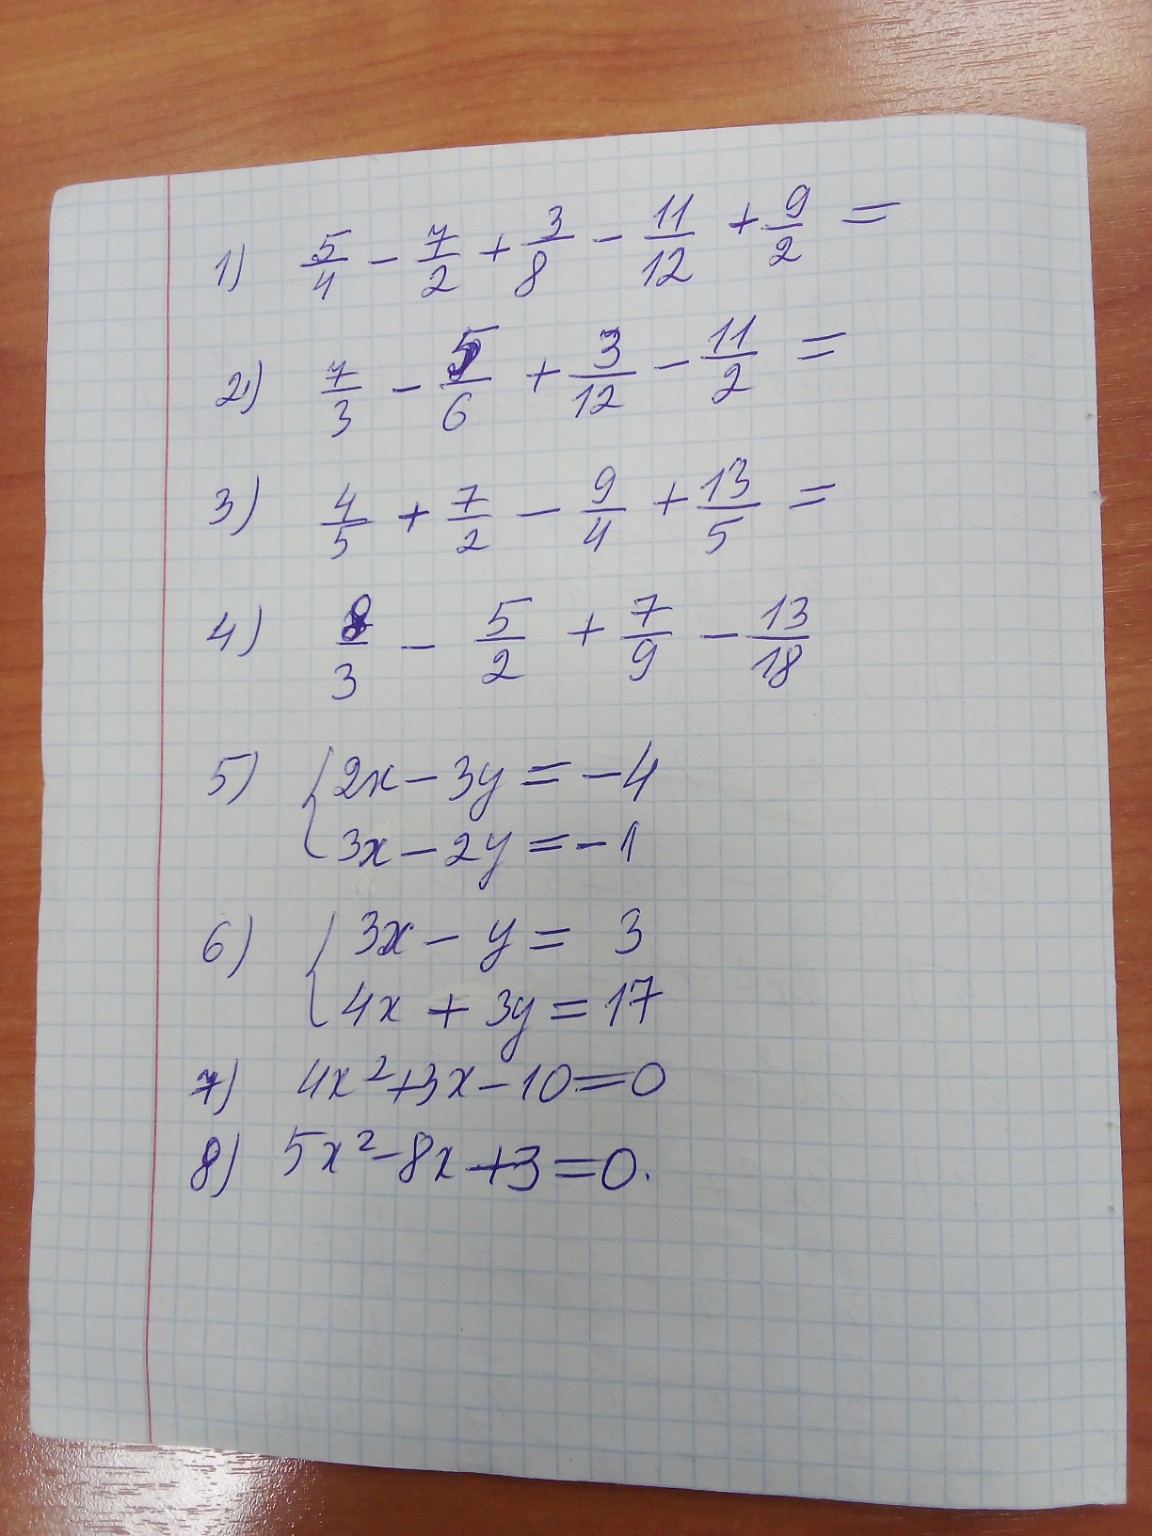 1) 5/4 - 7/2 + 3/8 - 11/12 + 9/2 =
2) 7/3 - 5/6 + 3/12 - 11/2 =
3) 4/5 + 7/2 - 9/4 + 13/5 =
4) 8/3 - 5/2 + 7/9 - 13/18
5) { 2x - 3y = -4
3x - 2y = -1
6) { 3x - y = 3
4x + 3y = 17
7) 4x² + 3x - 10 = 0
8) 5x² - 8x + 3 = 0.